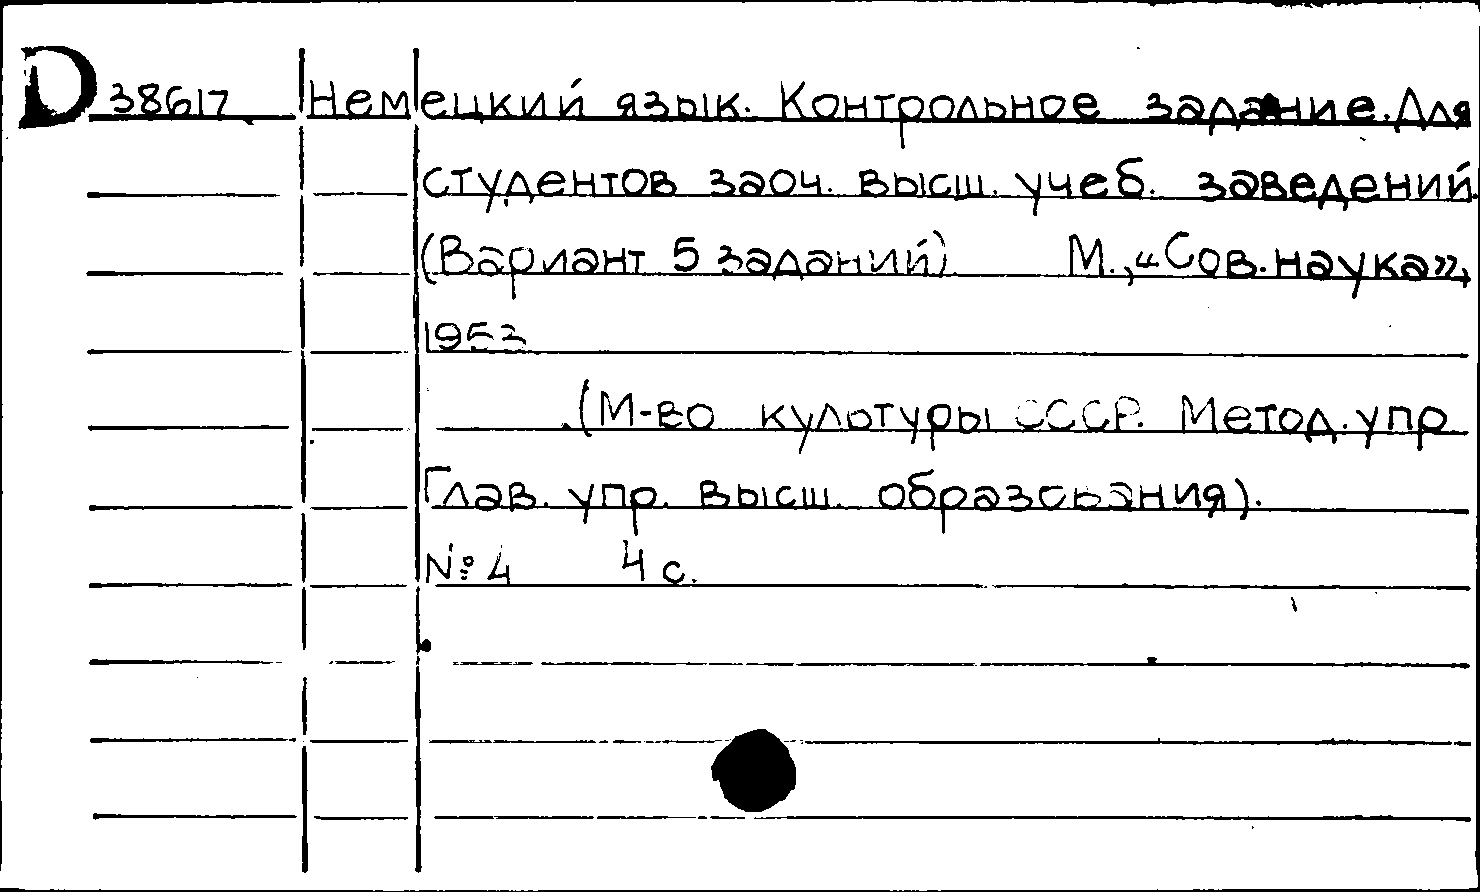 D 38617 Немецкий язык. Контрольное задание. Для
студентов заоч. высш. учеб. заведений.
(Вариант 5 заданий) М., «Сов. наука»,
1953
(М-во культуры СССР. Метод. упр
Глав. упр. высш. образования).
№ 4 4 с.